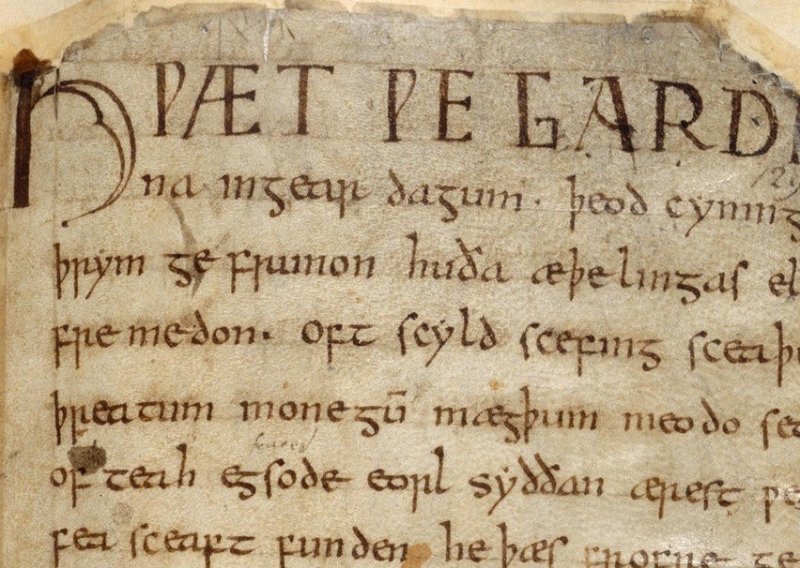 HǷÆT ǷE GARD
na ingear dagum. þeod cyning
þrym ge frunon huða æþelingas el
fremedon. oft scyld scefing sceaþe
þreatum monegū mægþum meodo set
of teah egsode eorl syððan ærest ƿe
fea sceaft funden he þæs frofre ge